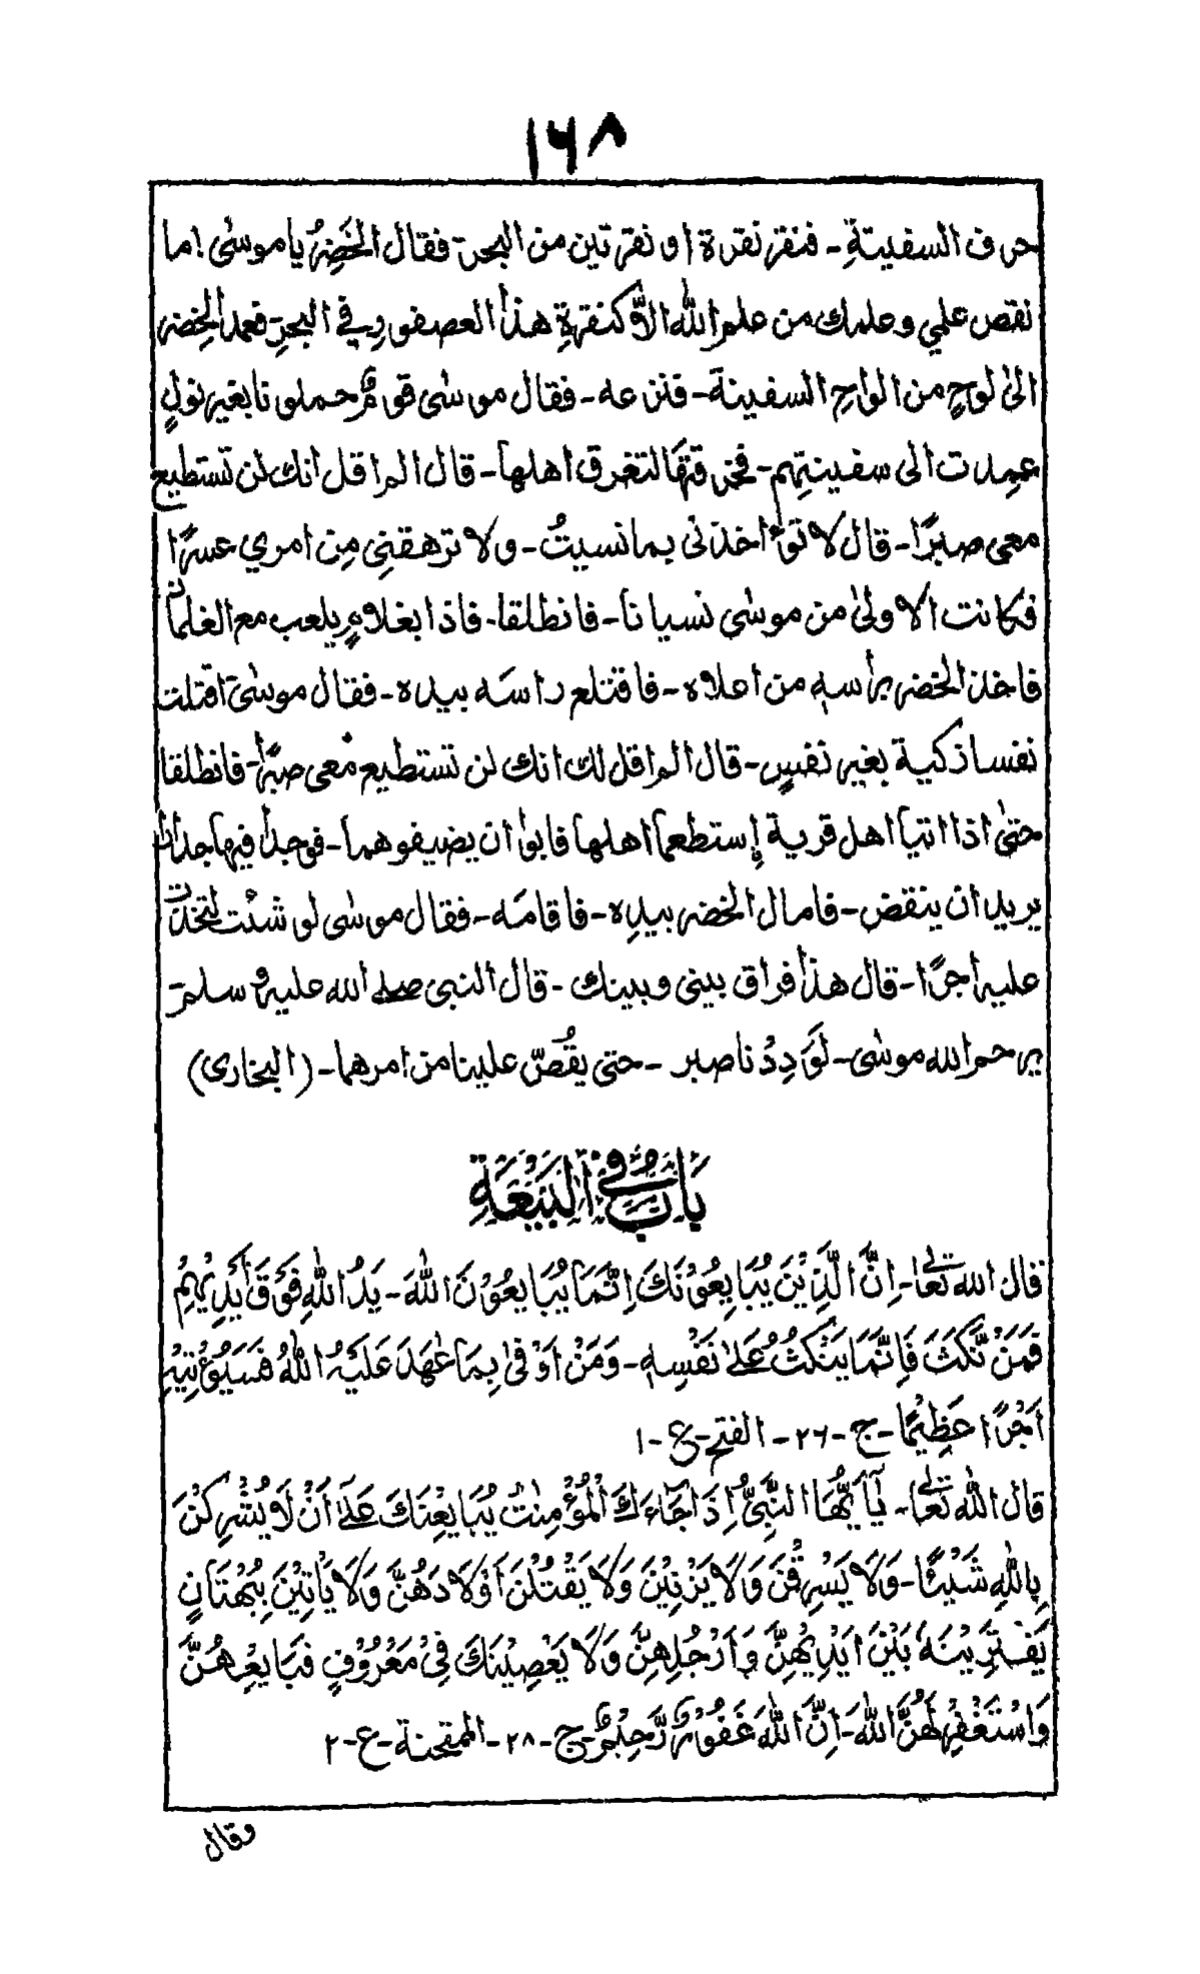 ١٦٨
حرف السفينةِ - فنقر نقرة او نقرتين من البحر - فقال الخَضِرُ يا موسٰى! ما
نقص علمي وعلمك من علم الله الّا كنقرةِ هذا العصفورِ في البحرِ - فعمد الخضر
الىٰ لوحٍ من الواحِ السفينة - فنزعه - فقال موسٰى قومٌ حملونا بغير نولٍ
عمدت الى سفينتِهم - فخرقتَها لتغرق اهلها - قال الم اقل انك لن تستطيع
معى صبرًا - قال لا تؤاخذنى بما نسيتُ - ولا ترهقنِى مِن امري عسرًا
فكانت الاولىٰ من موسٰى نسيانا - فانطلقا - فاذا بغلامٍ يلعب مع الغلمان
فاخذ الخضر برأسهٖ من اعلاه - فاقتلع راسَه بيده - فقال موسٰى اقتلت
نفسا زكية بغير نفسٍ - قال الم اقل لك انك لن تستطيع معى صبرًا - فانطلقا
حتىٰ اذا اتيا اهل قرية إستطعما اهلها فابوا ان يضيفوهما - فوجدا فيها جدارًا
يريد ان ينقض - فامال الخضر بيدِه - فاقامَه - فقال موسٰى لو شئت لتخذت
عليه اجرًا - قال هذا فراق بينى وبينك - قال النبى صلى الله عليه وسلم -
يرحم الله موسٰى - لوَدِدْنا صبر - حتى يقُصّ علينا من امرهما - (البخارى)
بَابٌ فِى الْبَيْعَةِ
قال الله تعالٰى - اِنَّ الَّذِيْنَ يُبَايِعُوْنَكَ اِنَّمَا يُبَايِعُوْنَ اللّٰهَ - يَدُ اللّٰهِ فَوْقَ اَيْدِيْهِمْ
فَمَنْ نَّكَثَ فَاِنَّمَا يَنْكُثُ عَلٰى نَفْسِهٖ - وَمَنْ اَوْفٰى بِمَا عٰهَدَ عَلَيْهُ اللّٰهَ فَسَيُؤْتِيْهِ
اَجْرًا عَظِيْمًا - ج - ٢٦ - الفتح - ع - ١
قال الله تعالٰى - يٰاَيُّهَا النَّبِىُّ اِذَا جَآءَكَ الْمُؤْمِنٰتُ يُبَايِعْنَكَ عَلٰى اَنْ لَّا يُشْرِكْنَ
بِاللّٰهِ شَيْئًا - وَلَا يَسْرِقْنَ وَلَا يَزْنِيْنَ وَلَا يَقْتُلْنَ اَوْلَادَهُنَّ وَلَا يَاْتِيْنَ بِبُهْتَانٍ
يَفْتَرِيْنَهٗ بَيْنَ اَيْدِيْهِنَّ وَاَرْجُلِهِنَّ وَلَا يَعْصِيْنَكَ فِىْ مَعْرُوْفٍ فَبَايِعْهُنَّ
وَاسْتَغْفِرْ لَهُنَّ اللّٰهَ - اِنَّ اللّٰهَ غَفُوْرٌ رَّحِيْمٌ - ج - ٢٨ - الممتحنة - ع - ٢
وقال